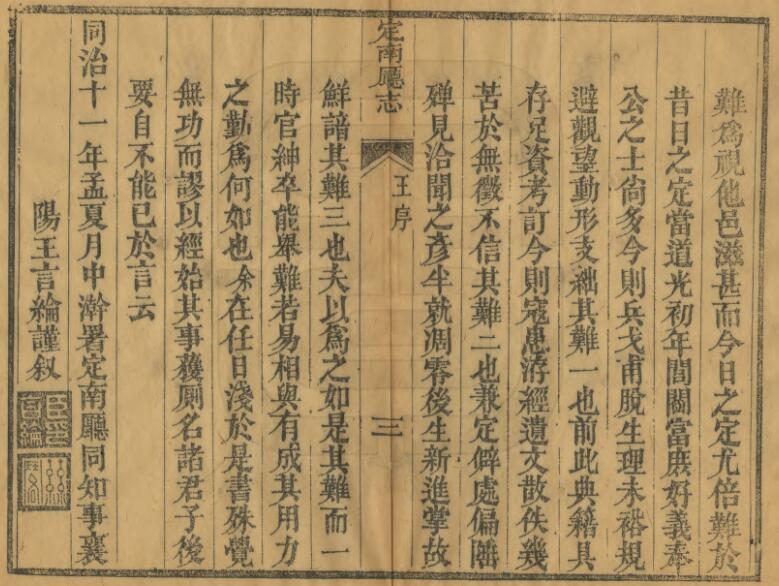 難爲視他邑滋甚而今日之定尤倍難於
昔日之定當道光初年間閭富庶好義奉
公之士尙多今則兵戈甫脫生理未裕規
避觀望動形支絀其難一也前此典籍具
存足資考訂今則寇患洊經遺文散佚幾
苦於無徵不信其難二也兼定僻處偏隅
殫見洽聞之彥半就凋零後生新進掌故
定南廳志
王序
三
鮮諳其難三也夫以爲之如是其難而一
時官紳卒能舉難若易相與有成其用力
之勤爲何如也余在任日淺於是書殊覺
無功而謬以經始其事獲厠名諸君子後
要自不能已於言云
同治十一年孟夏月中澣署定南廳同知事襄
陽王言綸謹叙